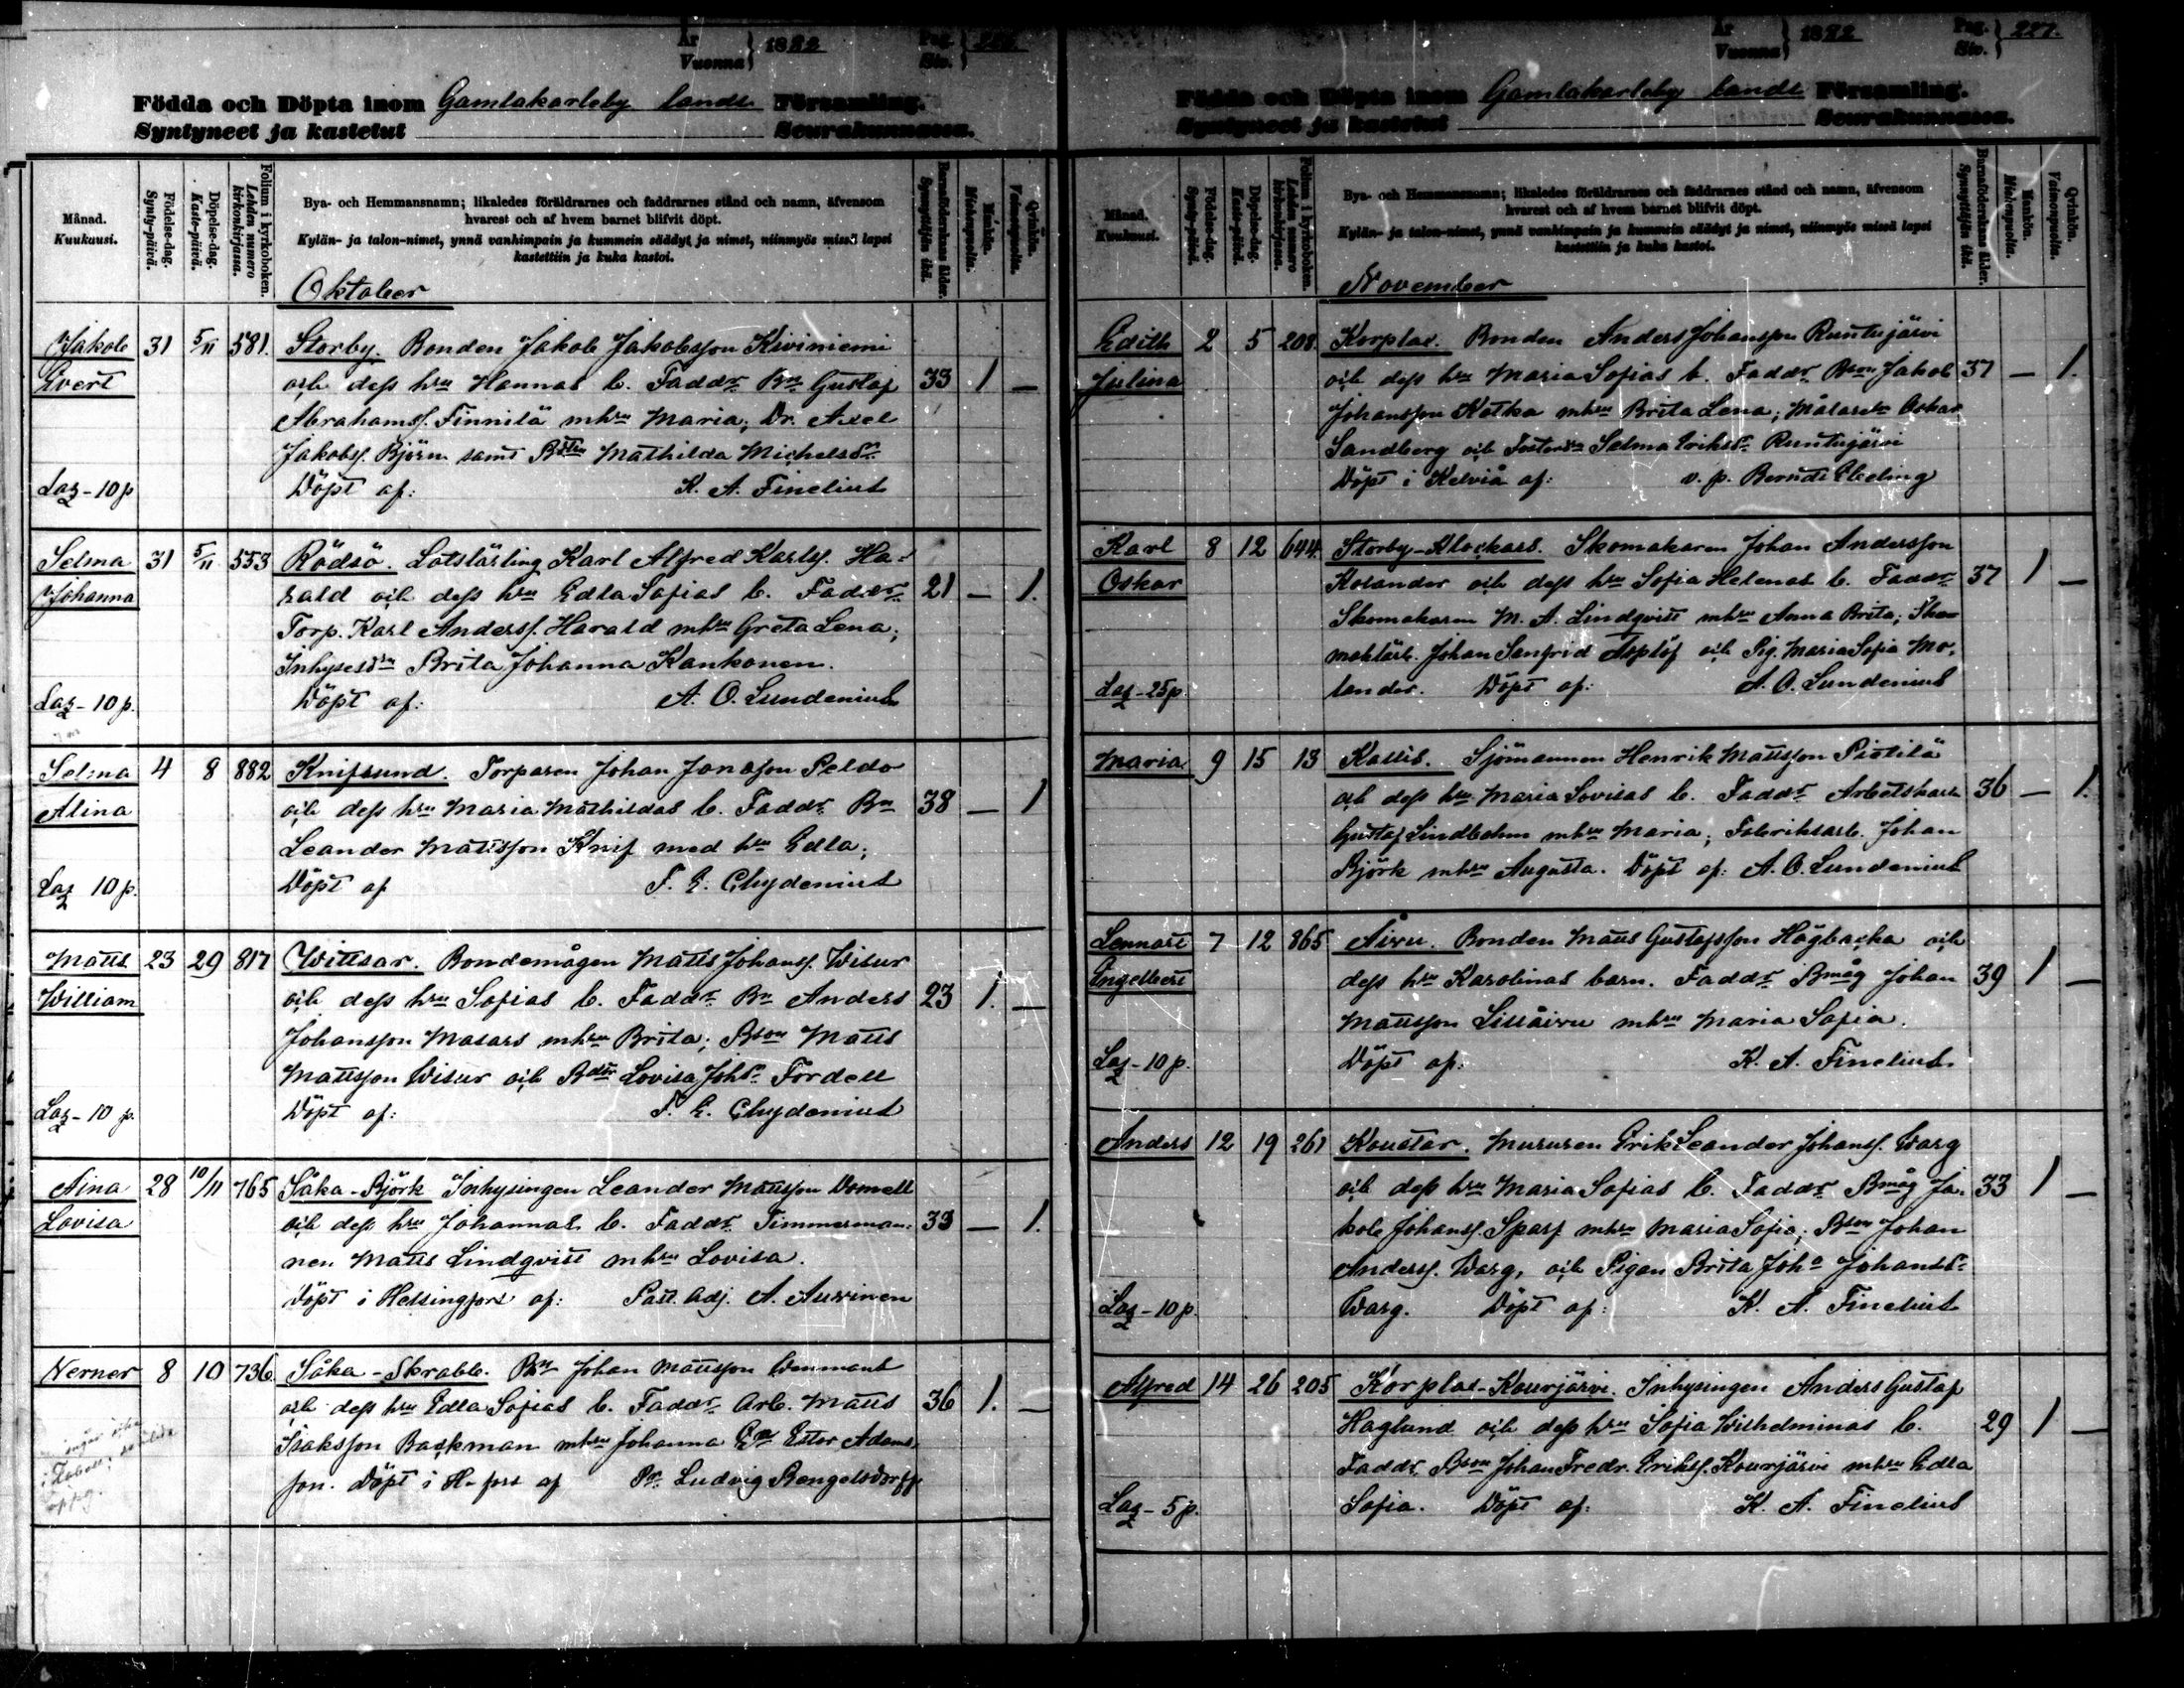 År
Vuonna } 1892 Pag.
Siv. }
Födda och Döpta inom Gamlakarleby lands Församling.
Syntyneet ja kastetut Seurakunnassa.
Månad.
Kuukausi.
Födelse-dag.
Synty-päivä.
Döpelse-dag.
Kaste-päivä.
Folium i kyrkoboken.
Lehden numero
kirkonkirjassa.
Bya- och Hemmansnamn; likaledes föräldrarnes och faddrarnes stånd och namn, äfvensom
hvarest och af hvem barnet blifvit döpt.
Kylän- ja talon-nimet, ynnä vanhimpain ja kummein säädyt ja nimet, niinmyös missä lapsi
kastettiin ja kuka kastoi.
Barnaföderskans ålder.
Synnyttäjän ikä.
Mankön.
Miehenpuolia.
Qvinkön.
Vaimonpuolia.
Oktober
Jakob 31 5/11 581. Storby. Bonden Jakob Jakobsson Kiviniemi
Evert och dess hru Hannas b. Faddr Bn Gustaf 33 1 —
Abrahamss. Finnilä m hru Maria; Dr. Axel
Jakobs. Björn samt Mathilda Michelsdr
Laz - 10 p Döpt af: K. A. Finelius
Selma 31 5/11 553 Rödsö. Lotslärling Karl Alfred Karls. Ha-
Johanna rald och dess hru Edla Sofias b. Faddr 21 — 1.
Torp. Karl Anderss. Harald m hru Greta Lena;
Inhysesdr Brita Johanna Kankonen.
Laz - 10 p. Döpt af: A. O. Lundenius
Selma 4 8 882 Knifsund. Torparen Johan Jonasson Peldo
Alina och dess hru Maria Mathildas b. Faddr Bn 38 — 1
Leander Mattsson Knif med hru Edla;
Laz 10 p. Döpt af F. E. Chydenius
Matts 23 29 817 Wittsar. Bondemågen Matts Johans. Wisur
William och dess hru Sofias b. Faddr Bn Anders 23 1. —
Johansson Masars m hru Brita; Bson Matts
Mattsson Wisur och Bdtr Lovisa Johsdr Fordell
Laz - 10 p. Döpt af: F. E. Chydenius
Aina 28 10/11 765 Såka-Björk Inhysingen Leander Mattsson Domell
Lovisa och dess hru Johannas b. Faddr Timmerman- 33 — 1.
nen Matts Lindqvist m hru Lovisa.
Döpt i Helsingfors af: Past. Adj. A. Auvinen
Verner 8 10 736. Såka-Skrabb. Bn Johan Mattsson Wenmans
och dess hru Edla Sofias b. Faddr Arb. Matts 36 1. —
Isaksson Backman m hru Johanna Ester Adams-
son. Döpt i H-fors af Ludvig Bengelsdorff
År
Vuonna } 1892 Pag.
Siv. } 227.
Födda och Döpta inom Gamlakarleby lands Församling.
Syntyneet ja kastetut Seurakunnassa.
Månad.
Kuukausi.
Födelse-dag.
Synty-päivä.
Döpelse-dag.
Kaste-päivä.
Folium i kyrkoboken.
Lehden numero
kirkonkirjassa.
Bya- och Hemmansnamn; likaledes föräldrarnes och faddrarnes stånd och namn, äfvensom
hvarest och af hvem barnet blifvit döpt.
Kylän- ja talon-nimet, ynnä vanhimpain ja kummein säädyt ja nimet, niinmyös missä lapsi
kastettiin ja kuka kastoi.
Barnaföderskans ålder.
Synnyttäjän ikä.
Mankön.
Miehenpuolia.
Qvinkön.
Vaimonpuolia.
November
Edith 2 5 208. Korplax. Bonden Anders Johansson Runtujärvi
Julina och dess hru Maria Sofias b. Faddr Bson Jakob 37 — 1.
Johansson Katka m hru Brita Lena; Målaren Oskar
Sandberg och Selma Eriksdr Runtujärvi
Döpt i Kelviå af: v. p. Berndt Ebeling
Karl 8 12 644. Storby-Klockars. Skomakaren Johan Andersson
Oskar Kosander och dess hru Sofia Helenas b. Faddr 37 1 —
Skomakaren M. A. Lindqvist m hru Anna Brita; Sko-
maklärl. Johan Sanfrid Asplöf och Pig. Maria Sofia Mo-
Laz - 25 p. lander. Döpt af: A. O. Lundenius
Maria 9 15 13 Kallis. Sjömannen Henrik Mattsson Pistilä
och dess hru Maria Lovisas b. Faddr Arbetskarl 36 — 1.
Gustaf Lindbohm m hru Maria; Fabriksarb. Johan
Björk m hru Augusta. Döpt af: A. O. Lundenius
Lennart 7 12 865 Åivu. Bonden Matts Gustafsson Högbacka och
Engelbert dess hru Karolinas barn. Faddr Bmåg Johan 39 1 —
Mattsson Lillåivu m hru Maria Sofia.
Laz - 10 p. Döpt af: K. A. Finelius
Anders 12 19 261 Koustar. Muraren Erik Leander Johans. Warg
och dess hru Maria Sofias b. Faddr Bmåg Ja- 33 1 —
kob Johans. Sparf m hru Maria Sofia; Bson Johan
Anderss. Warg, och Pigan Brita Joh:a Johansdr
Laz - 10 p. Warg. Döpt af: K. A. Finelius
Alfred 14 26 205 Korplax-Kourjärvi. Inhysingen Anders Gustaf
Haglund och dess hru Sofia Wilhelminas b. 29 1 —
Faddr. Bson Johan Fredr. Eriks. Kourjärvi m hru Edla
Laz - 5 p. Sofia. Döpt af: K. A. Finelius